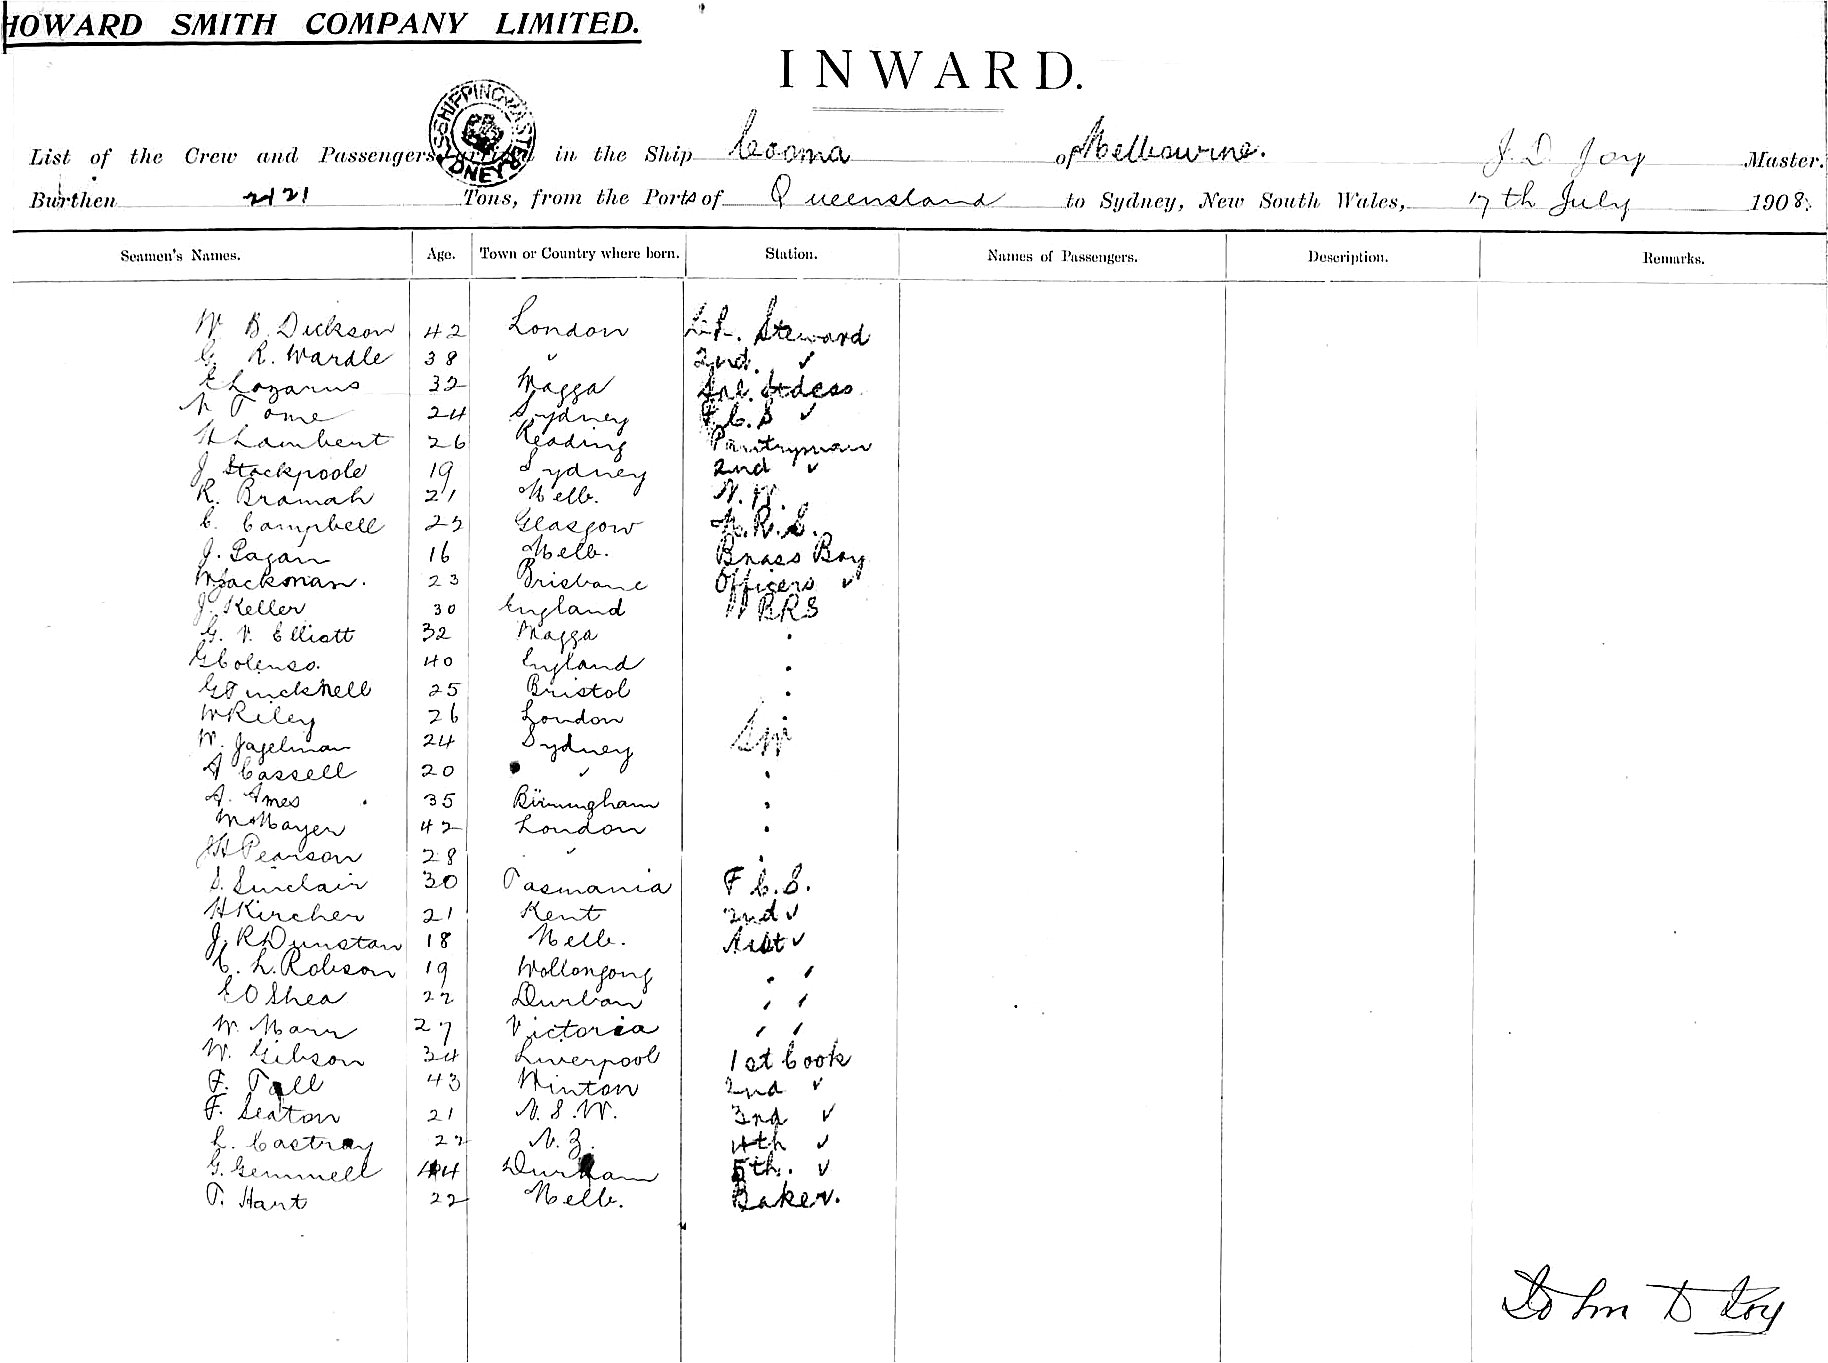 HOWARD SMITH COMPANY LIMITED.
INWARD.
SHIPPING MASTERS SYDNEY
List of the Crew and Passengers arrived in the Ship Cooma of Melbourne. J. D. Joy Master.
Burthen 2121 Tons, from the Ports of Queensland to Sydney, New South Wales, 17th July 1908.
Seamen's Names. Age. Town or Country where born. Station. Names of Passengers. Description. Remarks.
W B. Dickson 42 London Steward
G R. Wardle 38 " 2nd. "
E Lazarus 32 Wagga Stdess
Tome 24 Sydney F. C. S "
H Lambert 26 Reading Pantryman
J Stackpoole 19 Sydney 2nd "
R. Bramah 21 Melb. N. W.
C. Campbell 25 Glasgow
J. Pagan 16 Melb. Brass Boy
W Jackman. 23 Brisbane Officers "
J. Keller 30 England
G. V. Elliott 32 Wagga "
G Colenso. 40 England "
G Tincknell 25 Bristol "
W Riley 26 London "
W. Jagelman 24 Sydney SW
A Cassell 20 " "
A. Ames 35 Birmingham "
W Mayer 42 London "
H Pearson 28 " "
Sinclair 30 Tasmania F C. S.
H Kircher 21 Kent 2nd "
J. R Dunstan 18 Melb. Asst "
C. L. Robson 19 Wollongong " "
E O Shea 22 Durban " "
W. Marr 27 Victoria " "
W. Gibson 34 Liverpool 1st Cook
F. Tall 43 Winton 2nd "
F. Seaton 21 N. S. W. 3rd "
L. Castray 22 N. Z. 4th "
G. Gemmell 44 Durham 5th. "
T. Hart 22 Melb. Baker.
John D Joy